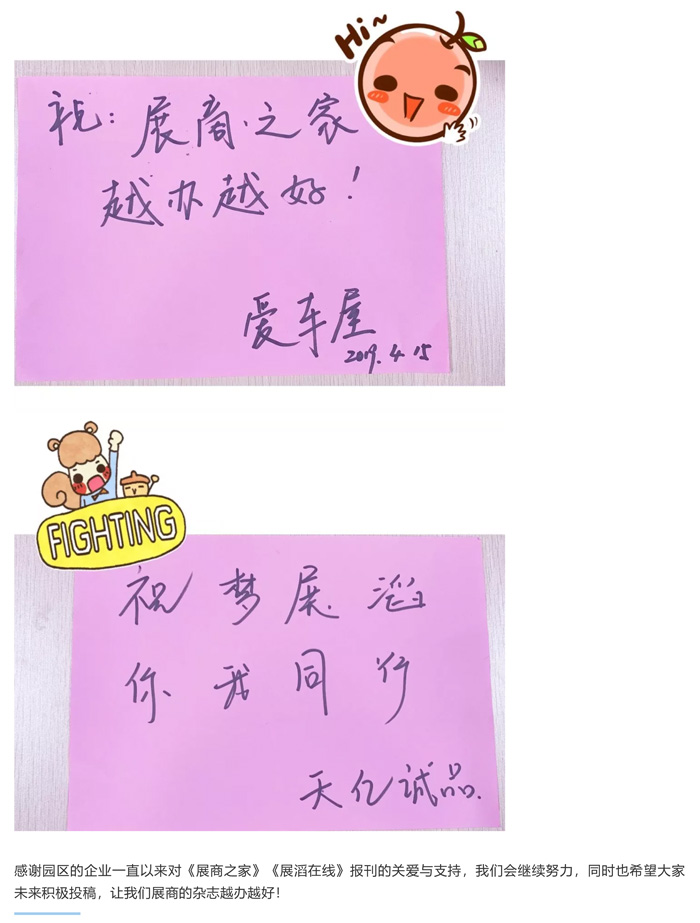 Hi~
祝：展商之家
越办越好！
爱车屋
2019.4.15
FIGHTING
祝梦展滔
你我同行
天亿诚品.
感谢园区的企业一直以来对《展商之家》《展滔在线》报刊的关爱与支持，我们会继续努力，同时也希望大家
未来积极投稿，让我们展商的杂志越办越好！